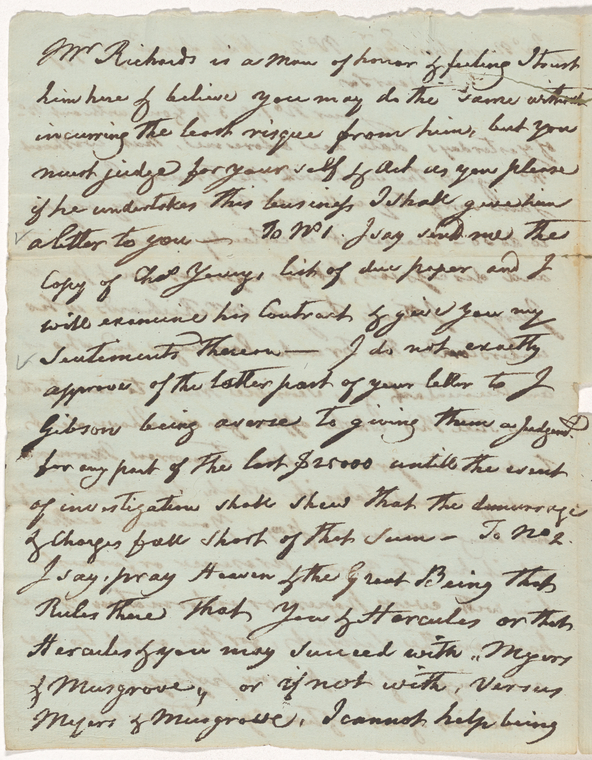 Mr Richards is a Man of honor & feeling I trust
him here & believe you may do the same without
incurring the least risque from him, but you
must judge for your self & Act as you please
if he undertakes this business I shall give him
a letter to you — To No 1. I say send me the
Copy of Thos. Youngs, list of due paper and I
will examine his Contract & give you my
Sentiments thereon — I do not exactly
approve of the latter part of your letter to J
Gibson being averse to giving them a Judgmt.
for any part of the last $25000 untill the event
of investigation shall shew that the demurrage
& Charges fall short of that Sum — To No 2.
I say, pray Heaven & the Great Being that
Rules there that You & Hercules or that
Hercules & you may succeed with "Myers
& Musgrove" or if not with, Versus
Myers & Musgrove, I cannot help being